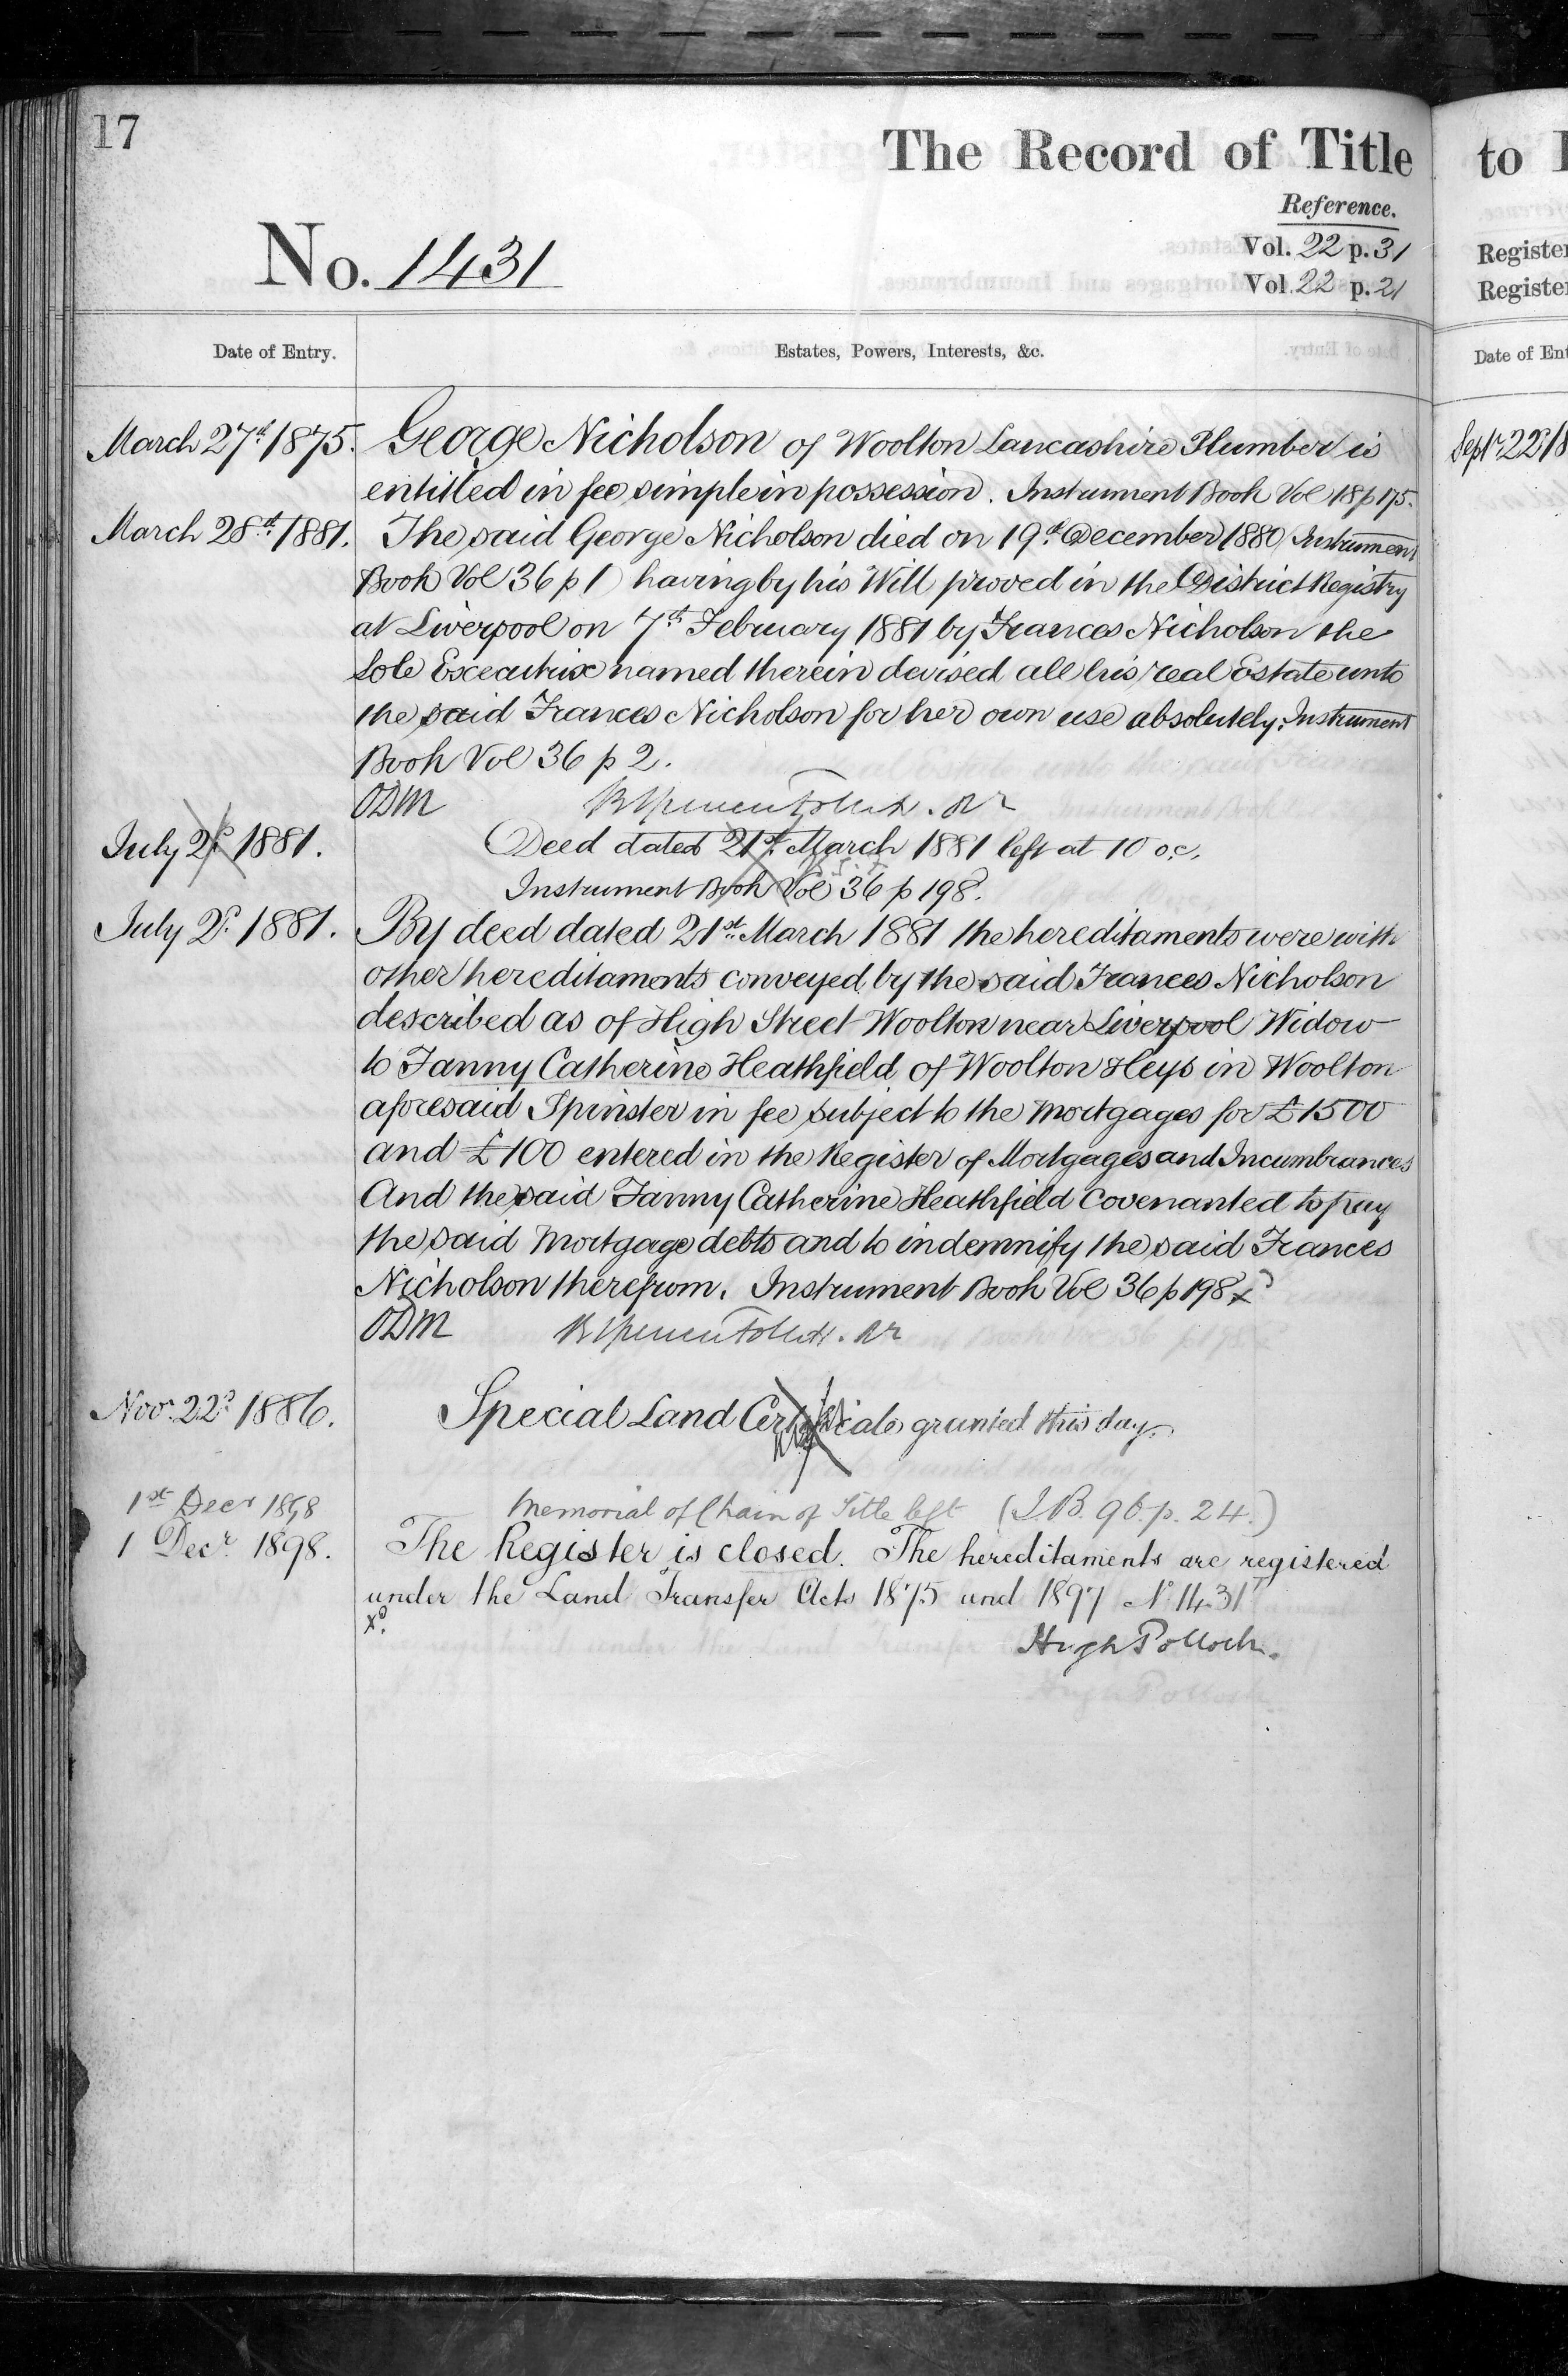 17
The Record of Title
Reference.
No. 1431
Vol. 22 p. 31
Vol. 22 p. 21
Date of Entry.
Estates, Powers, Interests, &c.
March 27th 1875. George Nicholson of Woolton Lancashire Plumber is
entitled in fee simple in possession. Instrument Book Vol 18 p 175.
March 28th 1881. The said George Nicholson died on 19th December 1880 Instrument
Book Vol 36 p 1) having by his Will proved in the District Registry
at Liverpool on 7th February 1881 by Frances Nicholson the
Sole Executrix named therein devised all his real Estate unto
the said Frances Nicholson for her own use absolutely. Instrument
Book Vol 36 p 2.
ODM
July 2d 1881. Deed dated 21st March 1881 left at 10 oc.
Instrument Book Vol 36 p 198.
July 2d 1881. By deed dated 21st March 1881 the hereditaments were with
other hereditaments conveyed by the said Frances Nicholson
described as of High Street Woolton near Liverpool Widow
to Fanny Catherine Heathfield of Woolton Heys in Woolton
aforesaid Spinster in fee subject to the Mortgages for £1500
and £100 entered in the Register of Mortgages and Incumbrances
And the said Fanny Catherine Heathfield Covenanted to pay
the said Mortgage debts and to indemnify the said Frances
Nicholson therefrom. Instrument Book Vol 36 p 198
ODM
Novr. 22d 1886. Special Land Certificate granted this day.
1st Decr 1898 Memorial of Chain of Title left (I.B. 96. p. 24.)
1 Decr. 1898. The Register is closed. The hereditaments are registered
under the Land Transfer Acts 1875 and 1897 No. 1431
Hugh Pollock.
to
Register
Register
Date of Ent
Septr. 22d 18